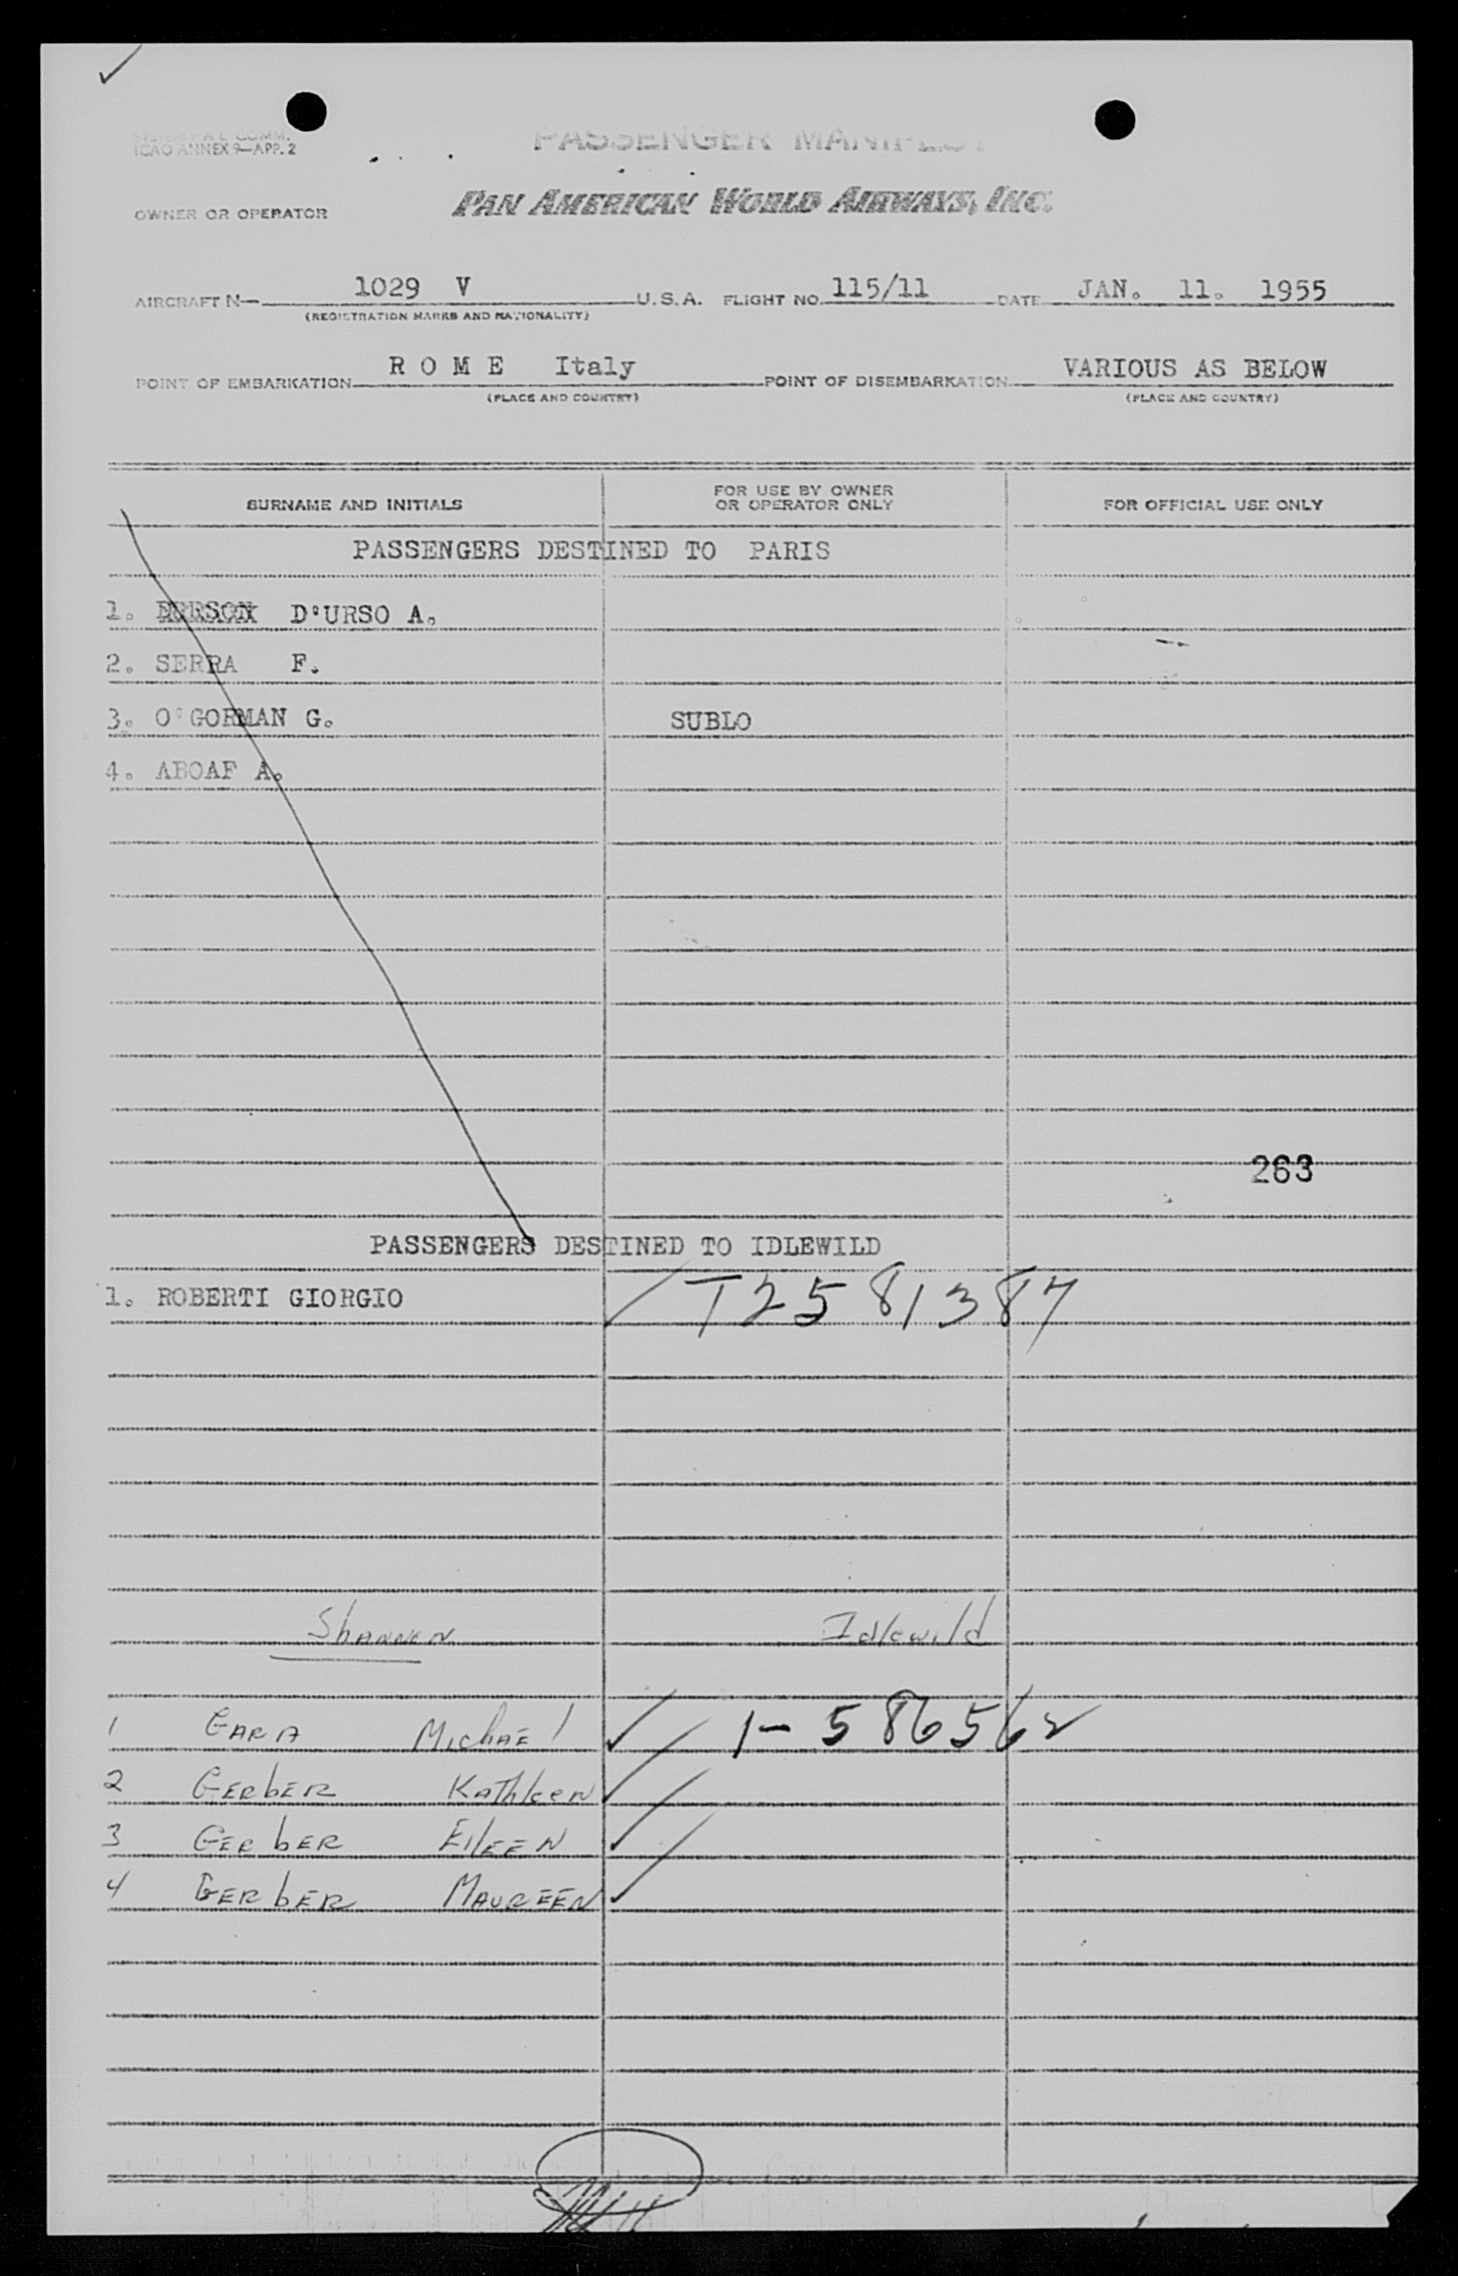 ICAO ANNEX 9—APP. 2
PASSENGER MANIFEST
OWNER OR OPERATOR PAN AMERICAN WORLD AIRWAYS, INC.
AIRCRAFT N— 1029 V U.S.A. FLIGHT NO. 115/11 DATE JAN. 11. 1955
(REGISTRATION MARKS AND NATIONALITY)
POINT OF EMBARKATION R O M E Italy POINT OF DISEMBARKATION VARIOUS AS BELOW
(PLACE AND COUNTRY) (PLACE AND COUNTRY)
SURNAME AND INITIALS FOR USE BY OWNER OR OPERATOR ONLY FOR OFFICIAL USE ONLY
PASSENGERS DESTINED TO PARIS
1. D'URSO A.
2. SERRA F.
3. O'GORMAN G. SUBLO
4. ABOAF A.
263
PASSENGERS DESTINED TO IDLEWILD
1. ROBERTI GIORGIO T2581387
Shannon Idlewild
1 GARA Michael 1-586562
2 Gerber Kathleen
3 Gerber Eileen
4 Gerber Maureen